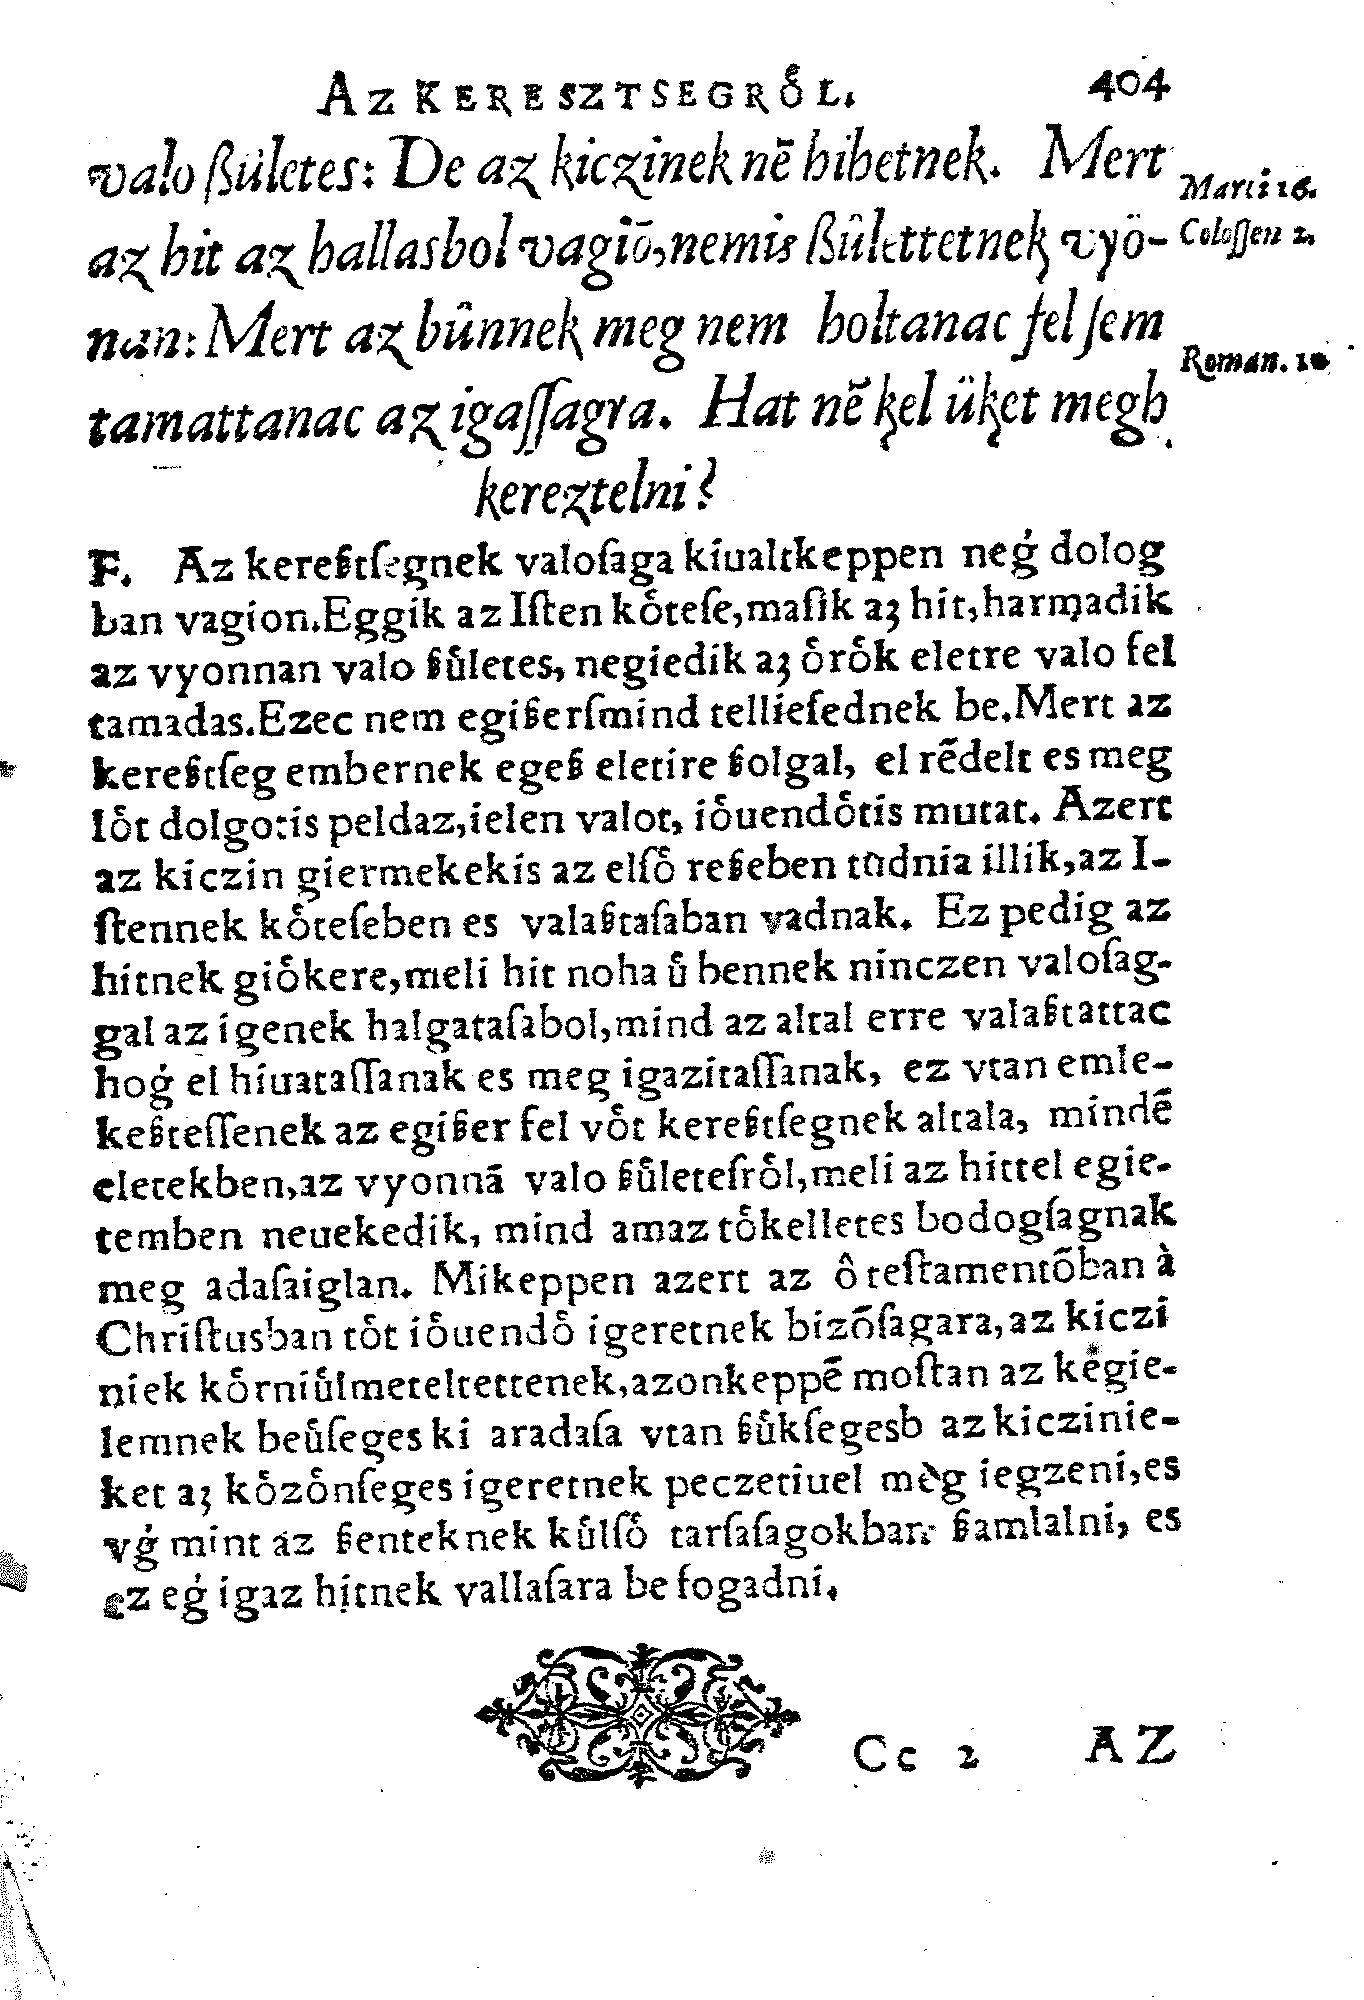 AZ KERESZTSEGRO̊L. 404
valo ßûletes: De az kiczinek nē hihetnek. Mert
Marci 16.
az hit az hallasbol vagiō, nemis ßûlettetnek vyö-
Colossen 2.
nan: Mert az bûnnek meg nem holtanac fel sem
Roman. 10
tamattanac az igaſſagra. Hat nē kel üket megh
kereztelni?
F. Az kereßtſegnek valoſaga kiualtkeppen neġ dolog
ban vagion. Eggik az Iſten ko̊teſe, maſik aʒ hit, harmadik
az vyonnan valo ßůletes, negiedik aʒ o̊ro̊k eletre valo fel
tamadas. Ezec nem egißerſmind tellieſednek be. Mert az
kereßtſeg embernek egeß eletire ßolgal, el rēdelt es meg
lo̊t dolgotis peldaz, ielen valot, io̊uendo̊tis mutat. Azert
az kiczin giermekekis az elſo̊ reßeben tudnia illik, az I-
ſtennek ko̊teſeben es valaßtaſaban vadnak. Ez pedig az
hitnek gio̊kere, meli hit noha ů bennek ninczen valoſag-
gal az igenek halgataſabol, mind az altal erre valaßtattac
hoġ el hiuataſſanak es meg igazitaſſanak, ez vtan emle-
keßteſſenek az egißer fel vo̊t kereßtſegnek altala, mindē
eletekben, az vyonnā valo ßůleteſro̊l, meli az hittel egie-
temben neuekedik, mind amaz to̊kelletes bodogſagnak
meg adaſaiglan. Mikeppen azert az ô teſtamentōban à
Chriſtusban to̊t io̊uendo̊ igeretnek bizōſagara, az kiczi
niek ko̊rniůlmeteltettenek, azonkeppē moſtan az kegie-
lemnek beůſeges ki aradaſa vtan ßůkſegesb az kiczinie-
ket aʒ ko̊zo̊nſeges igeretnek peczetiuel mèg iegzeni, es
vġ mint az ßenteknek kůlſo̊ tarſaſagokban ßamlalni, es
ez eġ igaz hitnek vallaſara be fogadni.
Cc 2 AZ